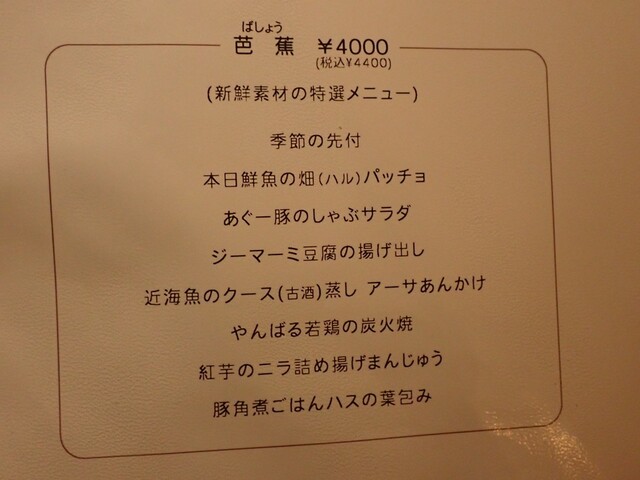 ばしょう
芭蕉 ¥4000
(税込¥4400)
(新鮮素材の特選メニュー)
季節の先付
本日鮮魚の畑(ハル)パッチョ
あぐー豚のしゃぶサラダ
ジーマーミ豆腐の揚げ出し
近海魚のクース(古酒)蒸し アーサあんかけ
やんばる若鶏の炭火焼
紅芋のニラ詰め揚げまんじゅう
豚角煮ごはんハスの葉包み